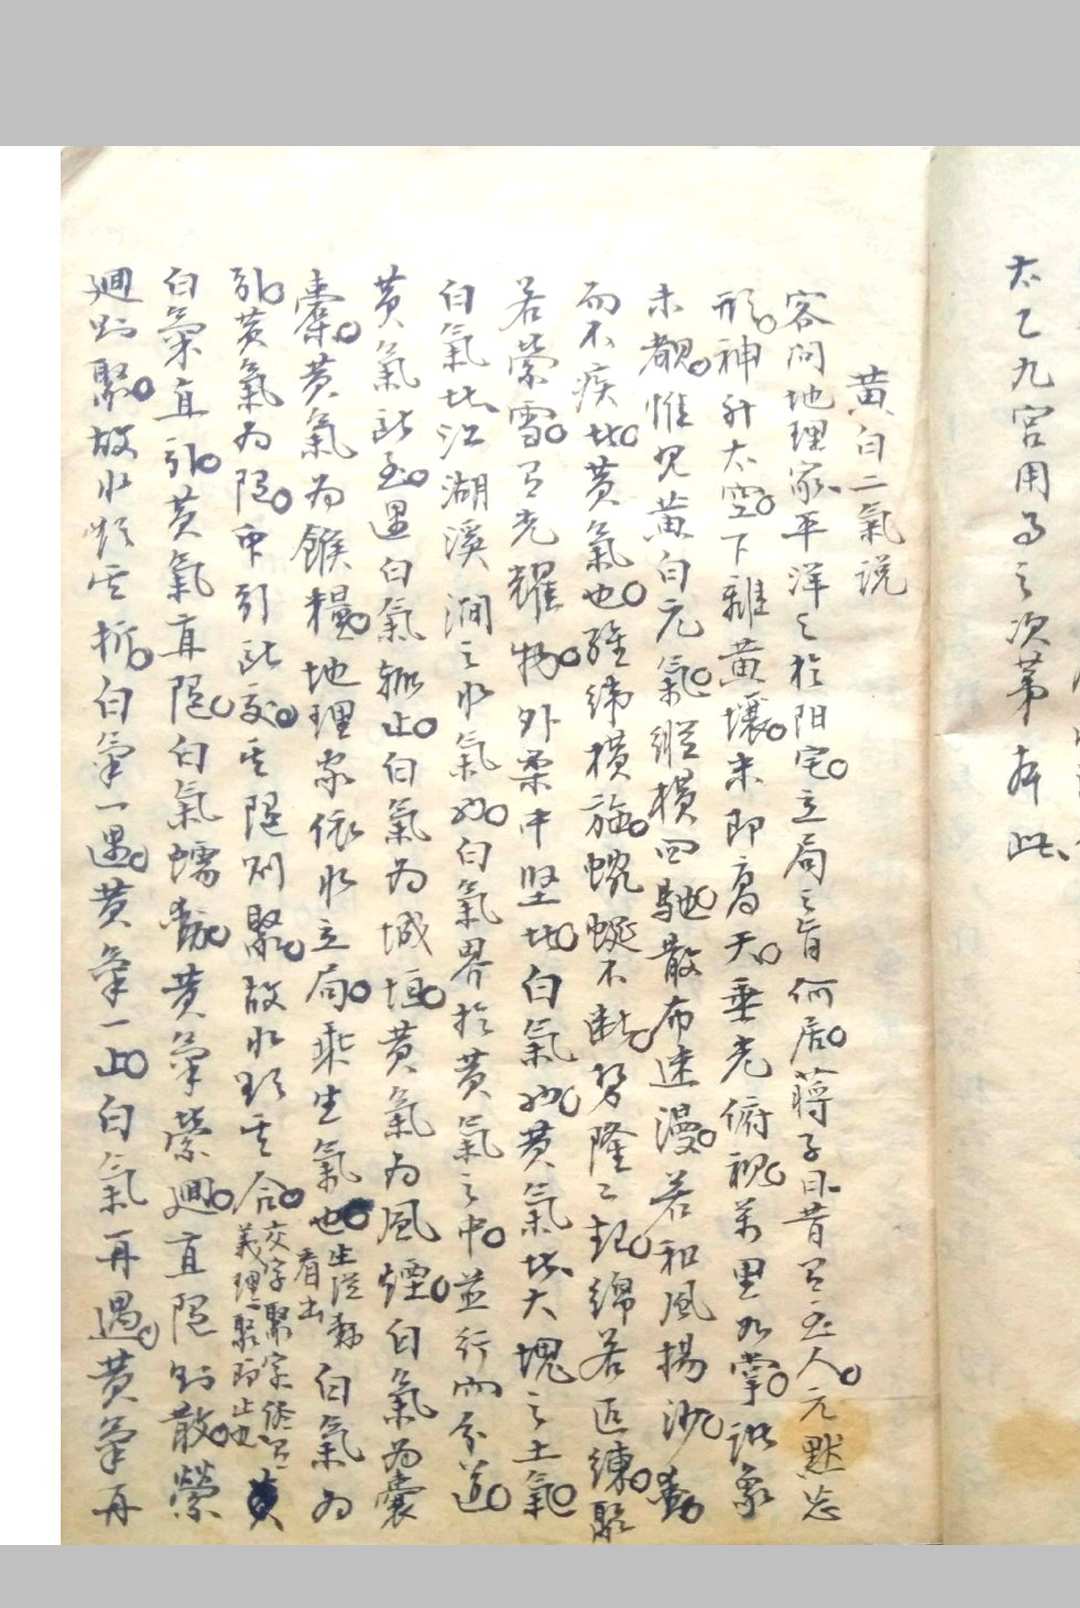 太乙九宮用事之次第存此
黃白二氣說
客问地理家平洋之於阳宅立局之旨何居蔣子曰昔有至人元默忘
形神升太空下離黃壤未即高天垂光俯視萬里如掌諸象
未覩惟見黃白元氣縱横四馳散布迷漫若和風揚沙動
而不疾此黃氣也經緯横施蜿蜒不断勢隆隆起綿若匹練聚
若縈雪有光耀物外柔中坚此白氣也黃氣此大塊之土氣
白氣此江湖溪澗之水氣也白氣界於黃氣之中並行而分道
黃氣所至遇白氣輒止白氣为城垣黃氣为風煙白氣为囊
橐黃氣为餱糧地理家依水立局乘生氣也生從動看出白氣为
引黃氣为随市引所交其随则聚故水點其合交字聚字俱有義理聚即止也黃
白氣直引黃氣直随白氣蠕動黃氣縈廻直随则散縈
廻则聚故水點其折白氣一遇黃氣一止白氣再遇黃氣再